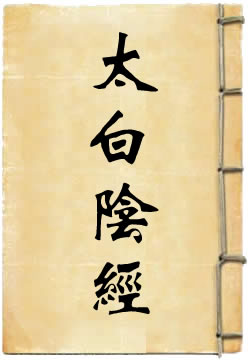 太白陰經